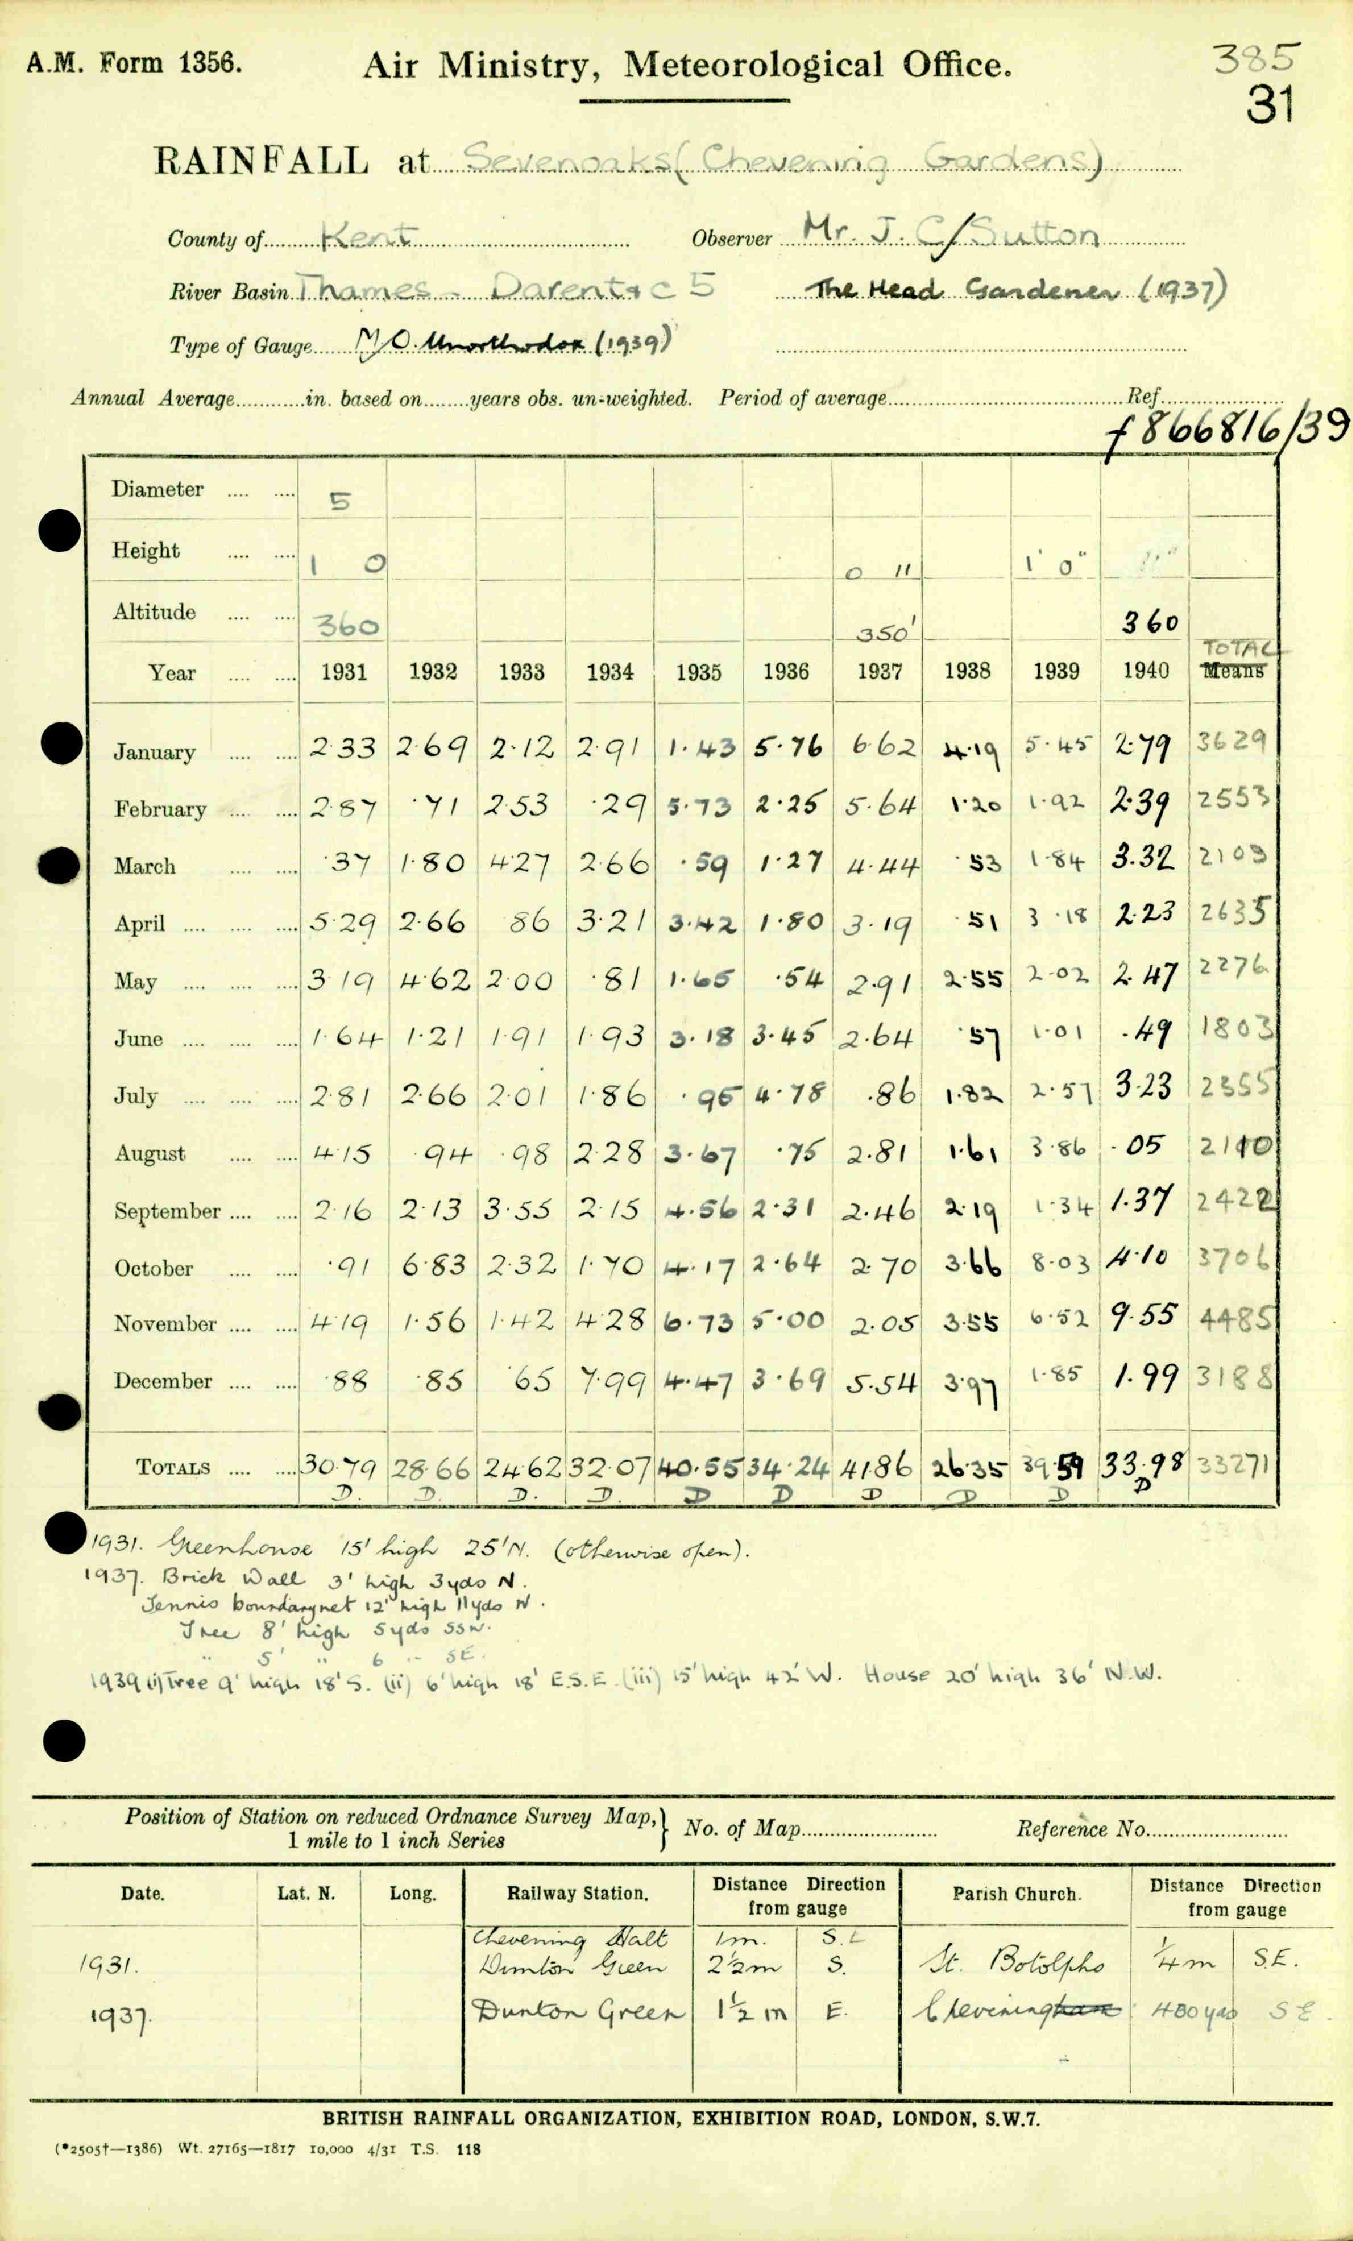 A.M. Form 1356.
Air Ministry, Meteorological Office.
385
31
RAINFALL at Sevenoaks (Chevening Gardens)
County of Kent Observer Mr. J. C/Sutton
River Basin Thames - Darent &c 5 The Head Gardener (1937)
Type of Gauge M/O. Unorthodox (1939)
Annual Average in. based on years obs. un-weighted. Period of average Ref.
f 866816/39
Diameter 5
Height 1 0 0 11 1' 0" 11"
Altitude 360 350' 360
Year 1931 1932 1933 1934 1935 1936 1937 1938 1939 1940 TOTAL Means
January 2.33 2.69 2.12 2.91 1.43 5.76 6.62 4.19 5.45 2.79 3629
February 2.87 .71 2.53 .29 5.73 2.25 5.64 1.20 1.92 2.39 2553
March .37 1.80 4.27 2.66 .59 1.27 4.44 .53 1.84 3.32 2109
April 5.29 2.66 86 3.21 3.42 1.80 3.19 .51 3.18 2.23 2635
May 3.19 4.62 2.00 .81 1.65 .54 2.91 2.55 2.02 2.47 2276
June 1.64 1.21 1.91 1.93 3.18 3.45 2.64 .57 1.01 .49 1803
July 2.81 2.66 2.01 1.86 .95 4.78 .86 1.82 2.57 3.23 2355
August 4.15 .94 .98 2.28 3.67 .75 2.81 1.61 3.86 .05 2110
September 2.16 2.13 3.55 2.15 4.56 2.31 2.46 2.19 1.34 1.37 2422
October .91 6.83 2.32 1.70 4.17 2.64 2.70 3.66 8.03 4.10 3706
November 4.19 1.56 1.42 4.28 6.73 5.00 2.05 3.55 6.52 9.55 4485
December .88 .85 .65 7.99 4.47 3.69 5.54 3.97 1.85 1.99 3188
TOTALS 30.79 28.66 24.62 32.07 40.55 34.24 41.86 26.35 39.59 33.98 33271
D. D. D. D. D D D D D D
1931. Greenhouse 15' high 25' N. (otherwise open).
1937. Brick Wall 3' high 3 yds N.
Tennis boundary net 12' high 11 yds N.
Tree 8' high 5 yds SSW.
" 5' " 6 " SE.
1939 (i) Tree 9' high 18' S. (ii) 6' high 18' E.S.E. (iii) 15' high 42' W. House 20' high 36' N.W.
Position of Station on reduced Ordnance Survey Map, 1 mile to 1 inch Series } No. of Map Reference No.
Date. Lat. N. Long. Railway Station. Distance Direction from gauge Parish Church. Distance Direction from gauge
Chevening Halt 1m. S.E
1931. Dunton Green 2½m S. St. Botolphs ¼m S.E.
1937. Dunton Green 1½ m E. Cheveningham 400 yds S E.
BRITISH RAINFALL ORGANIZATION, EXHIBITION ROAD, LONDON, S.W.7.
(*2505†—1386) Wt. 27165—1817 10,000 4/31 T.S. 118